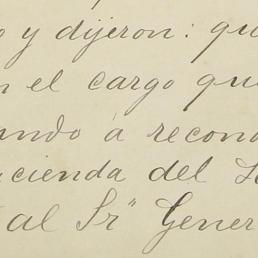 o y dijeron: qu
n el cargo qu
ando á recono
cienda del
al Sr" Gener